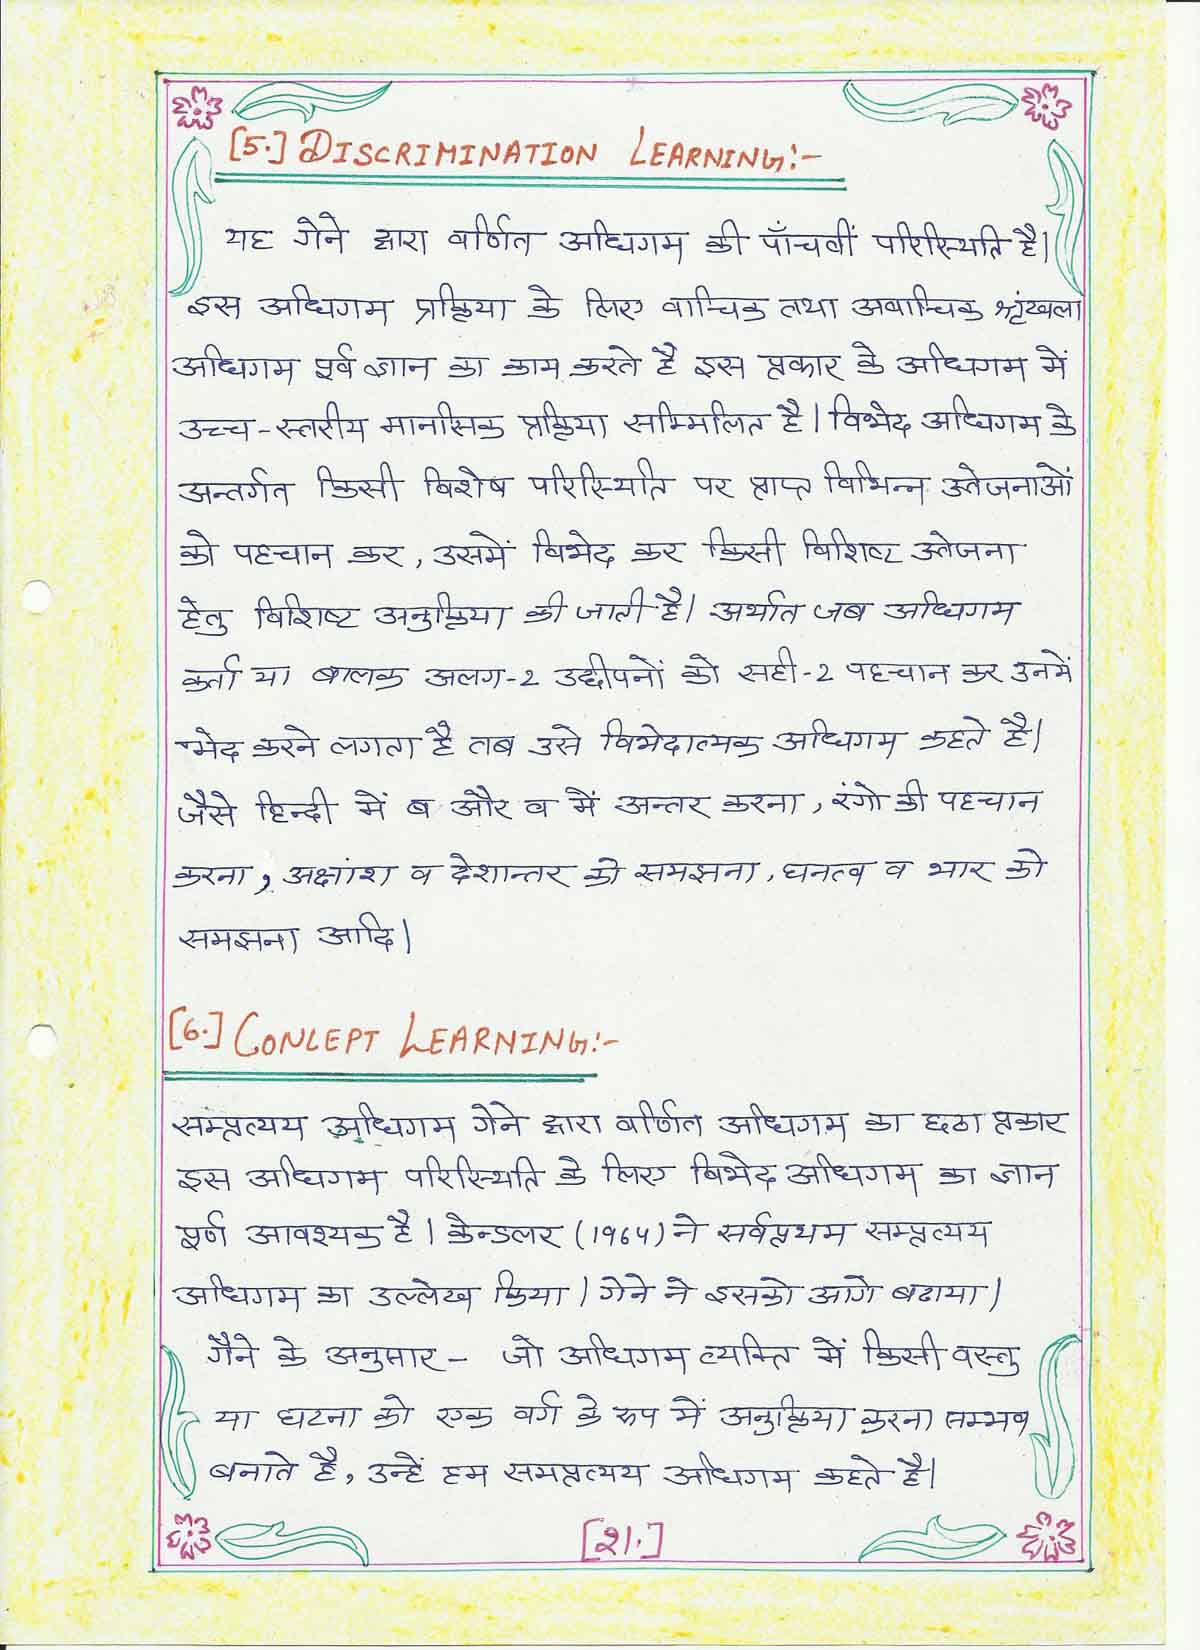 [5.] DISCRIMINATION LEARNING:-
यह गेने द्वारा वर्णित अधिगम की पाँचवीं परिस्थिति है।
इस अधिगम प्रक्रिया के लिए वाचिक तथा अवाचिक श्रृंखला
अधिगम पूर्व ज्ञान का काम करते है इस प्रकार के अधिगम में
उच्च-स्तरीय मानसिक प्रक्रिया सम्मिलित है। विभेद अधिगम के
अन्तर्गत किसी विशेष परिस्थिति पर प्राप्त विभिन्न उतेजनाओं
को पहचान कर, उसमें विभेद कर किसी विशिष्ट उतेजना
हेतु विशिष्ट अनुक्रिया की जाती है। अर्थात जब अधिगम
कर्ता या बालक अलग-2 उद्दीपनों को सही-2 पहचान कर उनमें
भेद करने लगता है तब उसे विभेदात्मक अधिगम कहते है।
जैसे हिन्दी में ब और व में अन्तर करना, रंगो की पहचान
करना, अक्षांश व देशान्तर को समझना, घनत्व व भार को
समझना आदि।
[6.] CONCEPT LEARNING:-
सम्प्रत्यय अधिगम गेने द्वारा वर्णित अधिगम का छठा प्रकार
इस अधिगम परिस्थिति के लिए विभेद अधिगम का ज्ञान
पूर्ण आवश्यक है। केन्डलर (1964) ने सर्वप्रथम सम्प्रत्यय
अधिगम का उल्लेख किया। गेने ने इसको आगे बढाया।
गैने के अनुसार - जो अधिगम व्यक्ति में किसी वस्तु
या घटना को एक वर्ग के रुप में अनुक्रिया करना सम्भव
बनाते है, उन्हें हम समप्रत्यय अधिगम कहते है।
[21.]